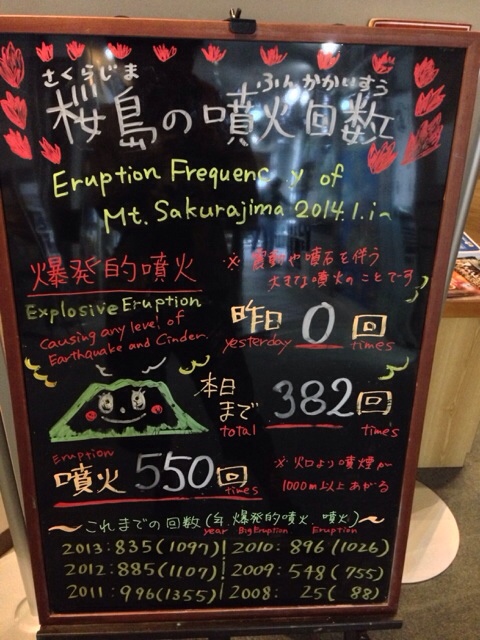 さくらじま ふんかかいすう
桜島の噴火回数
Eruption Frequency of
Mt. Sakurajima 2014.1.1~
爆発的噴火
※ 震動や噴石を伴う
大きな噴火のことです
Explosive Eruption
causing any level of
Earthquake and Cinder.
昨日 0 回
yesterday times
本日
まで 382 回
total times
Eruption
噴火 550 回
times
※ 火口より噴煙が
1000m以上あがる
~これまでの回数(年 爆発的噴火、噴火)~
year Big Eruption Eruption
2013:835(1097) 2010:896(1026)
2012:885(1107) 2009:548(755)
2011:996(1355) 2008:25(88)